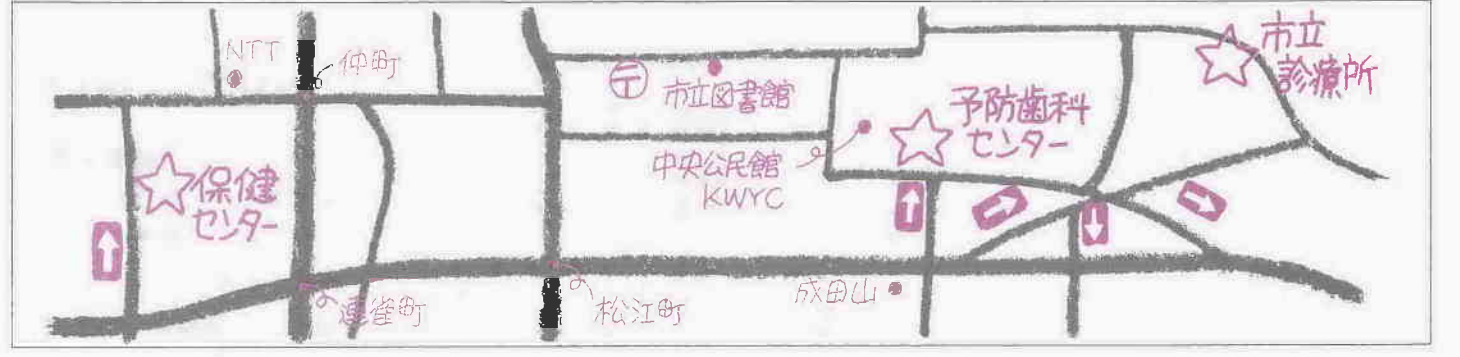 NTT
仲町
〒
市立図書館
市立
診療所
予防歯科
センター
中央公民館
KWYC
保健
センター
連雀町
松江町
成田山